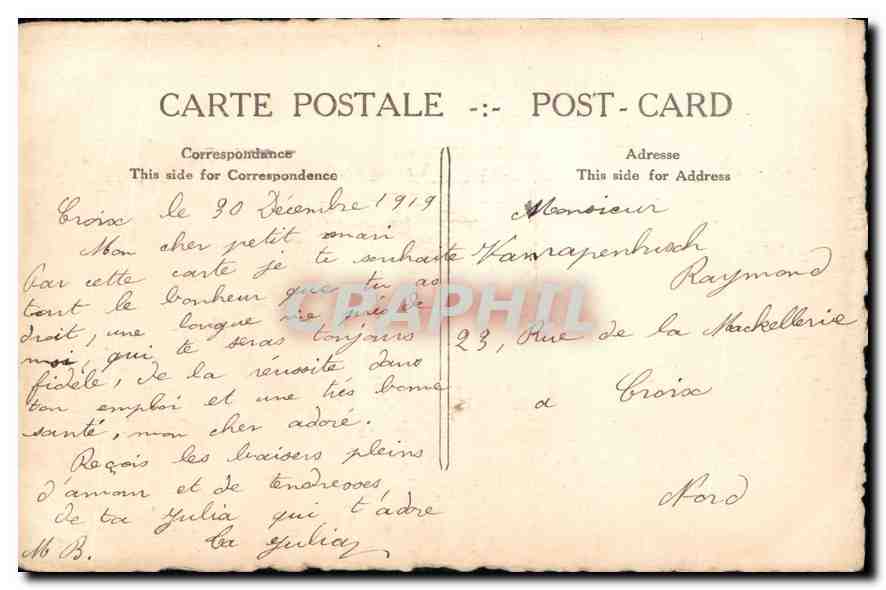 CARTE POSTALE -:- POST-CARD
Correspondance
This side for Correspondence
Adresse
This side for Address
Croix le 30 Décembre 1919
Mon cher petit mari
Par cette carte je te souhaite
tout le bonheur que tu as
droit, une longue vie près de
moi, qui te seras toujours
fidèle, de la réussite dans
ton emploi et une très bonne
santé, mon cher adoré.
Reçois les baisers pleins
d'amour et de tendresses
de ta Julia qui t'adore
M B. Ta Julia
Monsieur
Vanrapenbusch
Raymond
23, Rue de la Mackellerie
à Croix
Nord
CPAPHIL